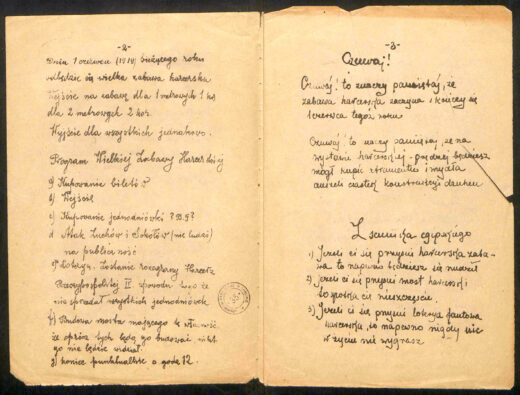 -2-
Dnia 1 czerwca (1919) bieżącego roku
odbędzie się wielka zabawa harcerska
Wejście na zabawę dla 1 metrowych 1 kor
dla 2 metrowych 2 kor.
Wyjście dla wszystkich jednakowo.
Program Wielkiej Zabawy Harcerskiej
a) Kupowanie biletów
b) Wejście
c) Kupowanie jednodniówki
d) Atak Zuchów i Sokołów (nie ludzi)
na publiczność
e) zostanie rozegrany
Rzeczypospolitej II. powodu tego że
nie sprzedał wszystkich jednodniówek
f) Budowa mostu mającego tę własność,
że oprócz tych będą go budować nikt
go nie będzie widział.
g) koniec punktualnie o godz 12.
-3-
Czuwaj!
Czuwaj! to znaczy pamiętaj, że
zabawa harcerska zaczyna i kończy się
1 czerwca tegoż roku
Czuwaj! to znaczy pamiętaj, że na
wystawie harcerskiej prędzej będziesz
mógł kupić
ciastek konstrukcji
Z sennika egipskiego
1) Jeżeli ci się przyśni harcerska zaba-
wa to napewno będziesz się nudził
2) Jeżeli ci się przyśni most harcerski
to spotka cię nieszczęście.
3) Jeżeli ci się przyśni loterya fantowa
harcerska, to napewno nigdy nic
w życiu nie wygrasz